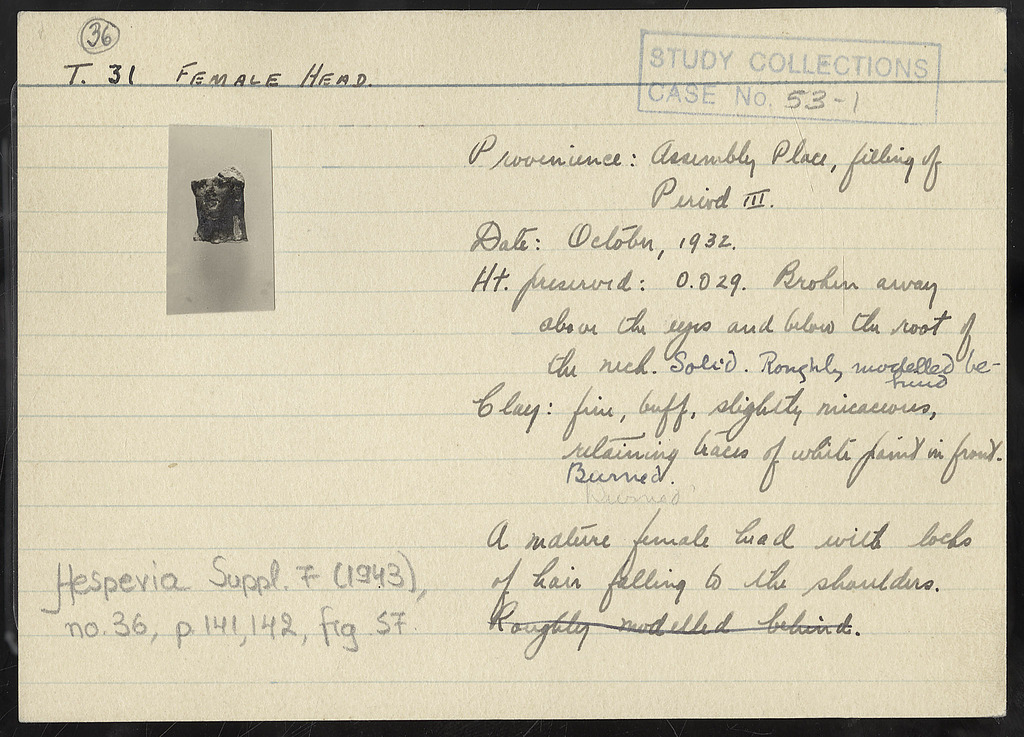 36
T. 31 FEMALE HEAD.
STUDY COLLECTIONS
CASE No. 53-1
Provenience: Assembly Place, filling of
Period III.
Date: October, 1932.
Ht. preserved: 0.029. Broken away
above the eyes and below the root of
the neck. Solid. Roughly modelled be-
hind
Clay: fine, buff, slightly micaceous,
retaining traces of white paint in front.
Burned.
Burned
A mature female head with locks
of hair falling to the shoulders.
Roughly modelled behind.
Hesperia Suppl. 7 (1943),
no. 36, p. 141, 142, fig 57.